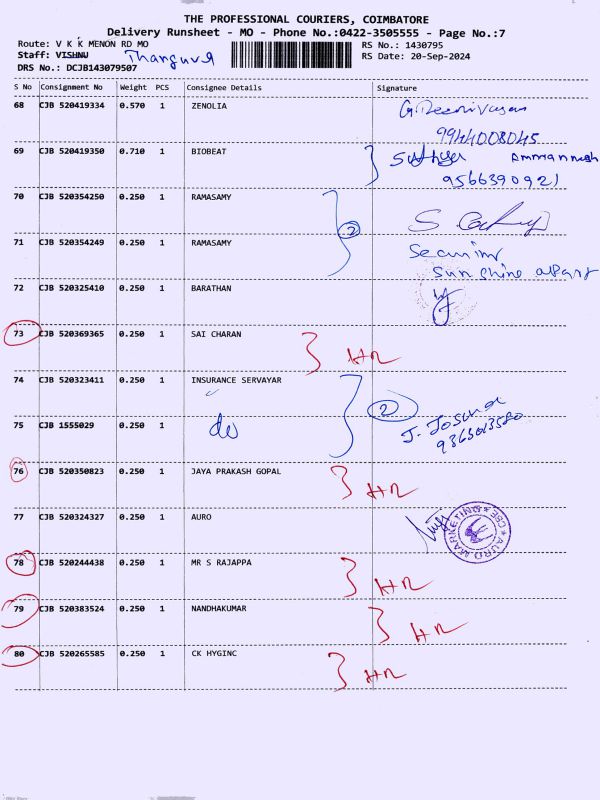 THE PROFESSIONAL COURIERS, COIMBATORE
Delivery Runsheet - MO - Phone No.:0422-3505555 - Page No.:7
Route: V K K MENON RD MO
RS No.: 1430795
Staff: VISHNU
RS Date: 20-Sep-2024
DRS No.: DCJB143079507
S No Consignment No Weight PCS Consignee Details Signature
68 CJB 520419334 0.570 1 ZENOLIA
9944008045
69 CJB 520419350 0.710 1 BIOBEAT
9566390921
70 CJB 520354250 0.250 1 RAMASAMY
2
71 CJB 520354249 0.250 1 RAMASAMY
Sun shine
72 CJB 520325410 0.250 1 BARATHAN
73 CJB 520369365 0.250 1 SAI CHARAN
74 CJB 520323411 0.250 1 INSURANCE SERVAYAR
2
75 CJB 1555029 0.250 1 do
76 CJB 520350823 0.250 1 JAYA PRAKASH GOPAL
77 CJB 520324327 0.250 1 AURO
AURO MARKETING CBE
78 CJB 520244438 0.250 1 MR S RAJAPPA
79 CJB 520383524 0.250 1 NANDHAKUMAR
80 CJB 520265585 0.250 1 CK HYGINC